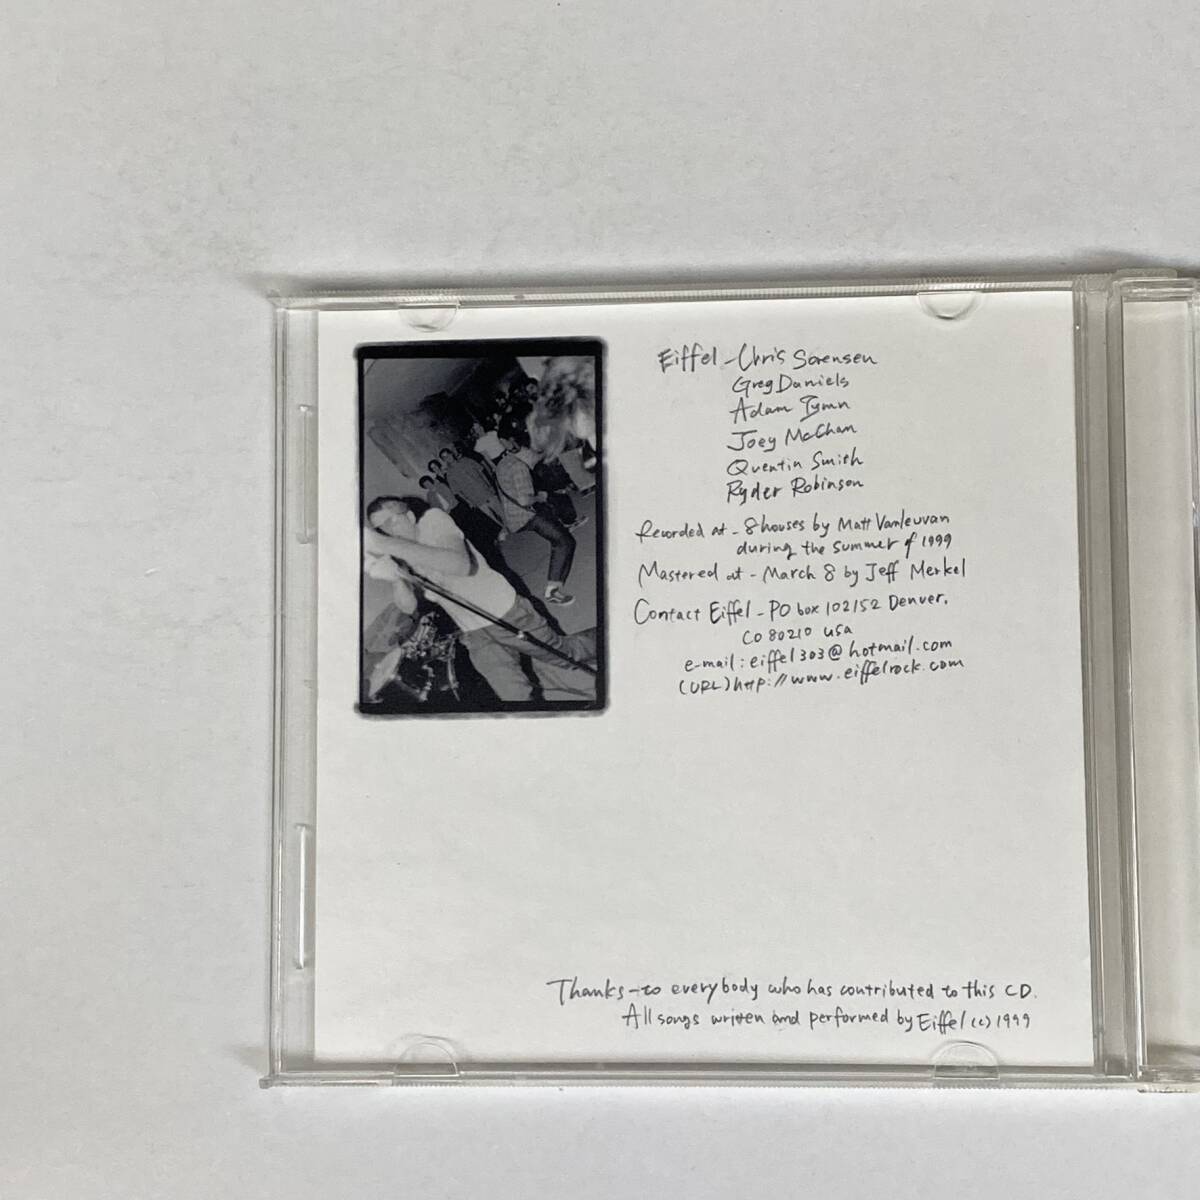 Eiffel - Chris Sorensen
Greg Daniels
Adam Tymn
Joey McChan
Quentin Smith
Ryder Robinson
Recorded at - 8 houses by Matt Vanleuvan
during the summer of 1999
Mastered at - March 8 by Jeff Merkel
Contact Eiffel - PO box 102152 Denver,
CO 80210 usa
e-mail : eiffel303@hotmail.com
(URL) http://www.eiffelrock.com
Thanks - to everybody who has contributed to this CD.
All songs written and performed by Eiffel (c) 1999